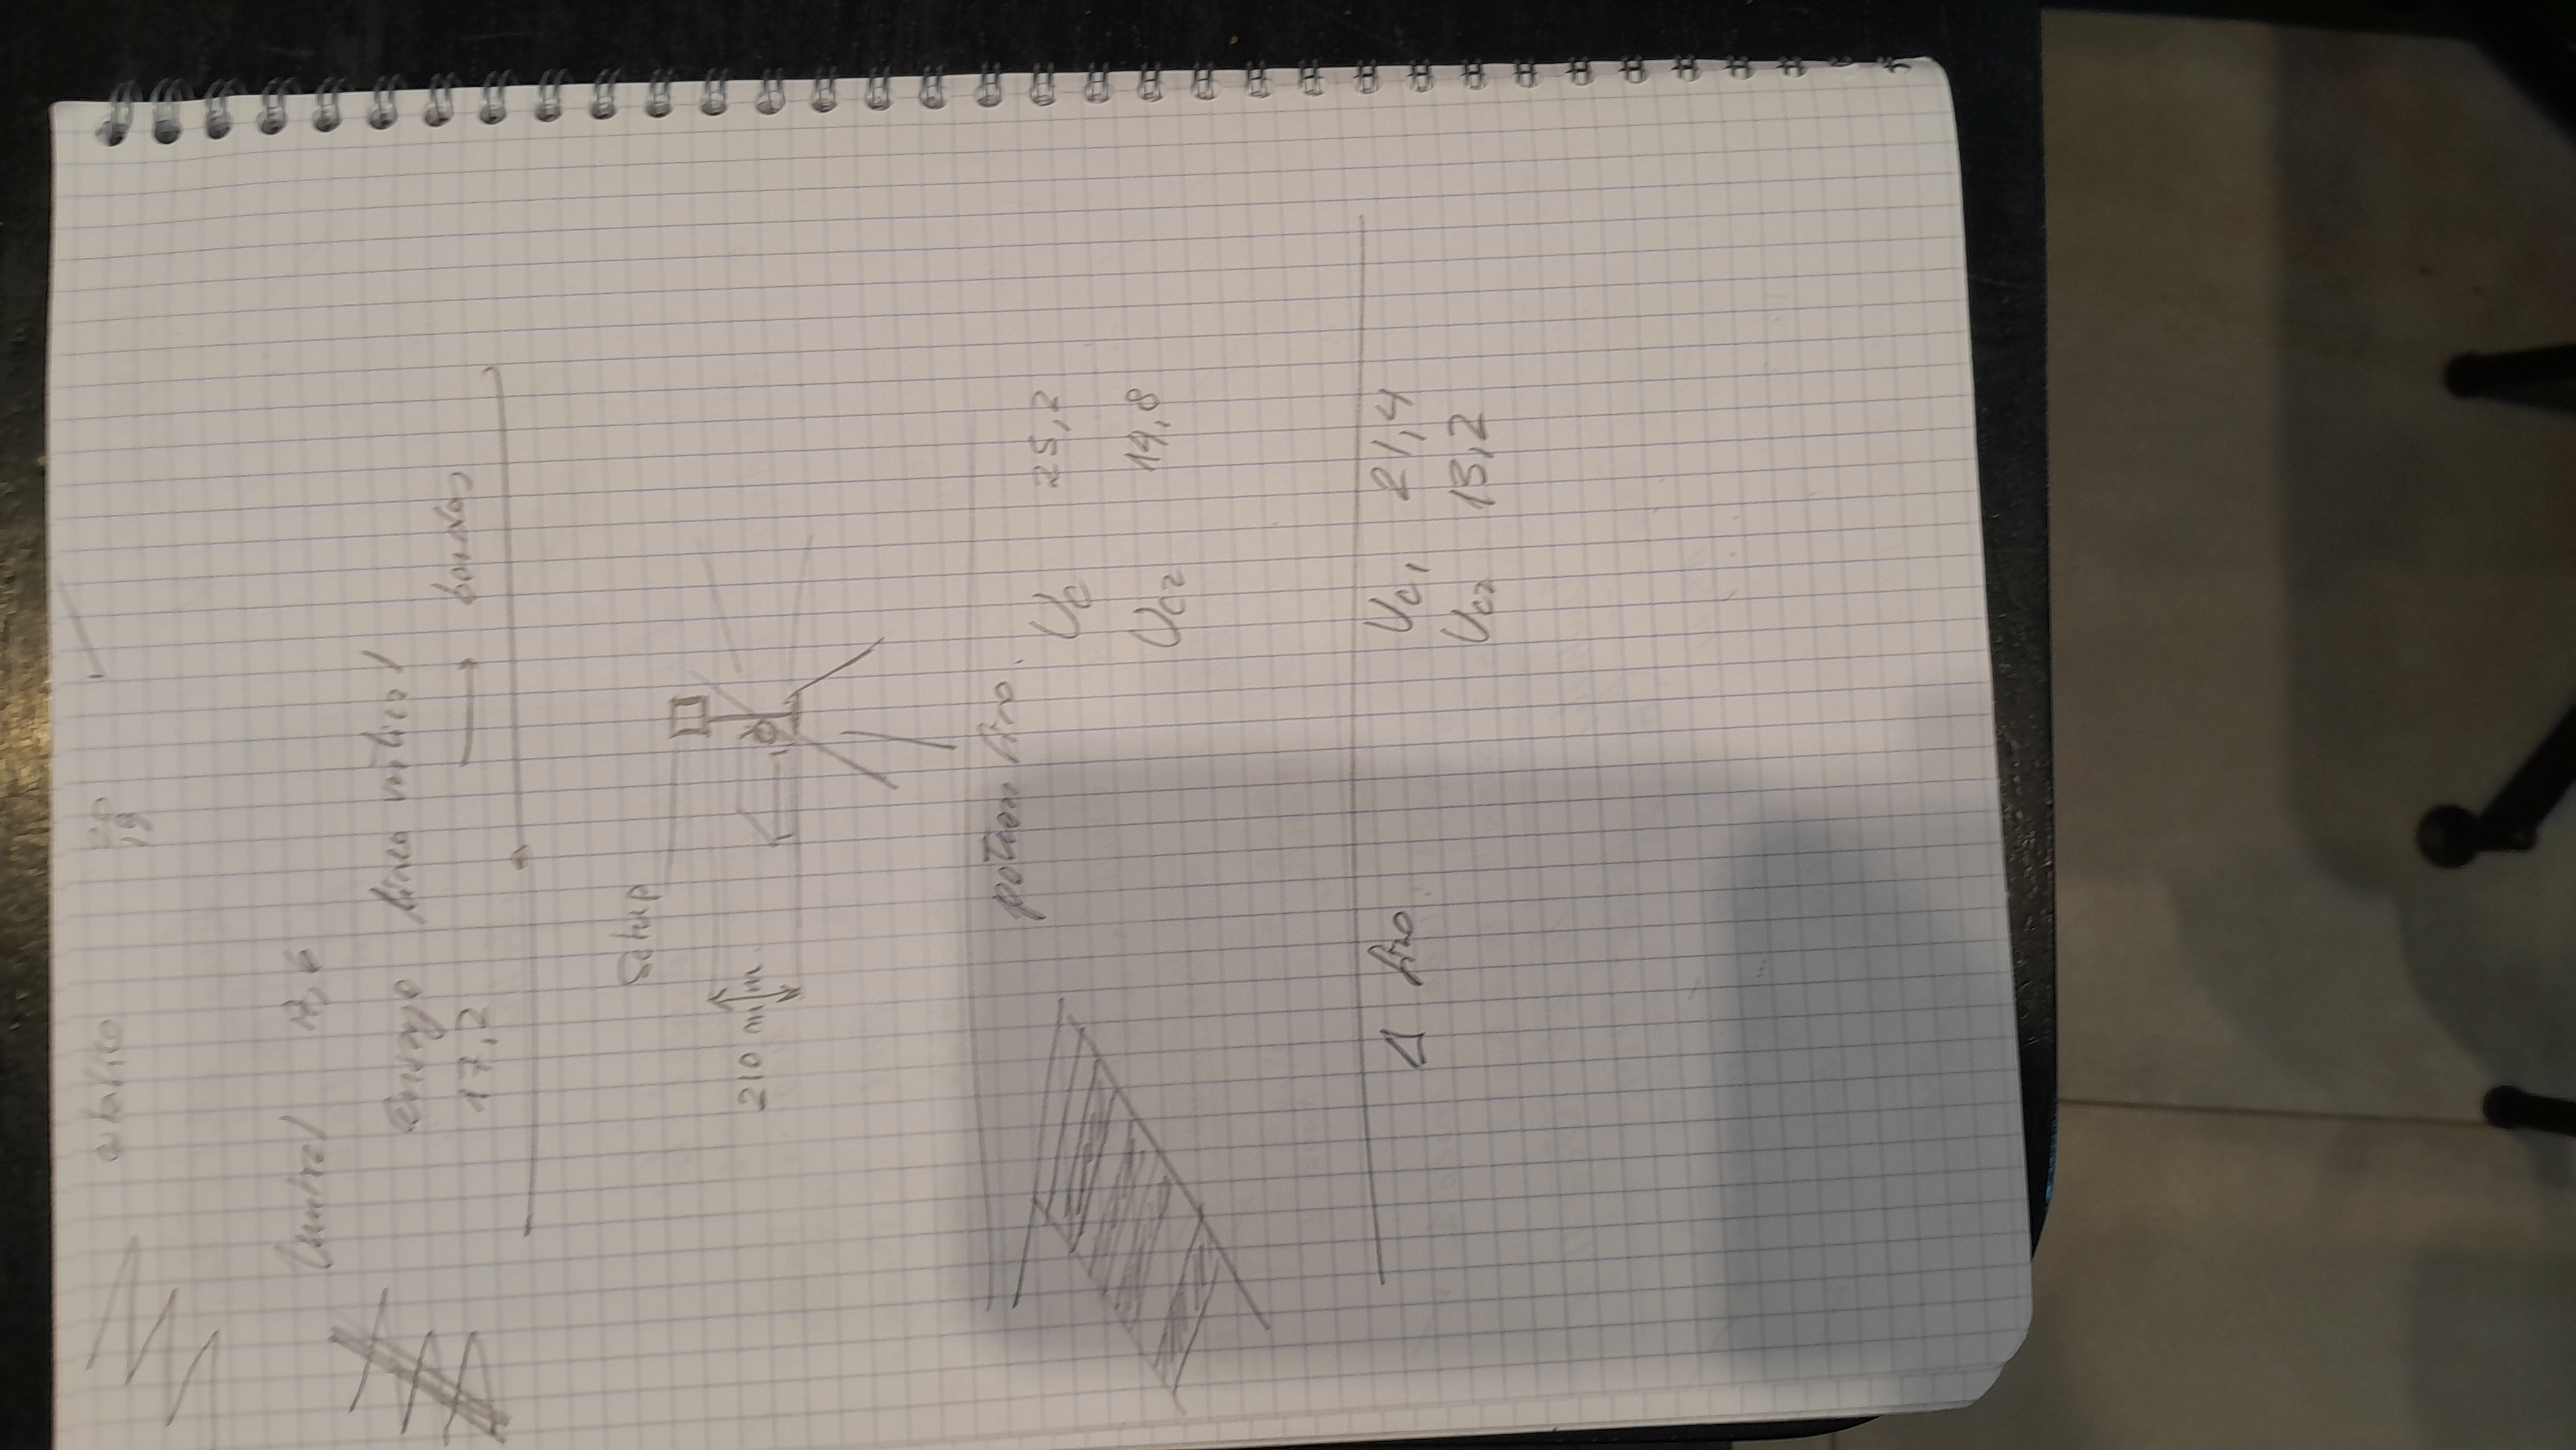 20
19
Umbral 17,6
ensayo linea vertical
17,2
bordes
Setup
210 mm
patron fino.
Uc 25,2
Uc2 14,8
Δ fino
Uc1 21,4
Uc2 13,2